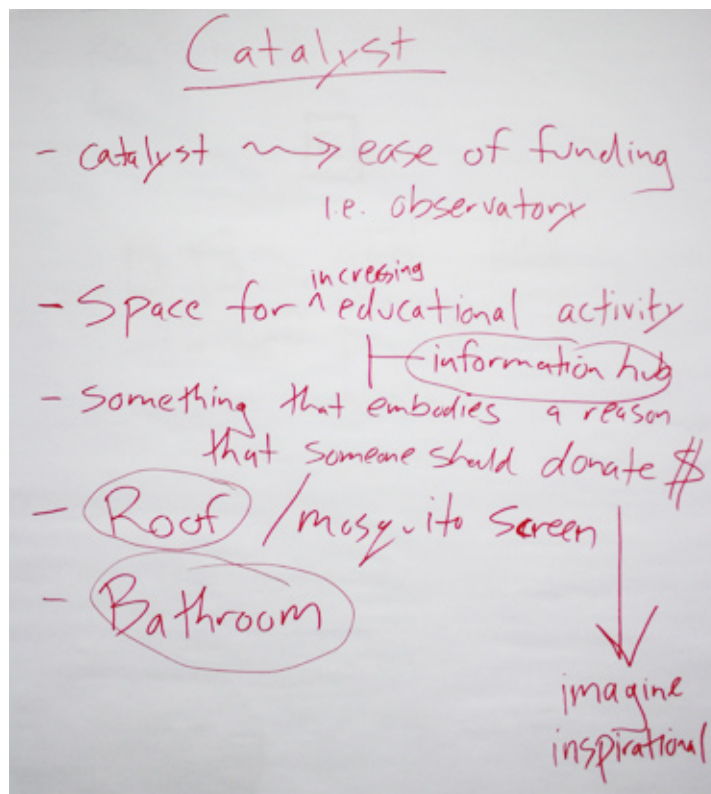 Catalyst
- catalyst ⟿ ease of funding
i.e. observatory
- Space for ^increasing educational activity
information hub
- Something that embodies a reason
that someone should donate $
- Roof / mosquito screen
- Bathroom
imagine
inspirational